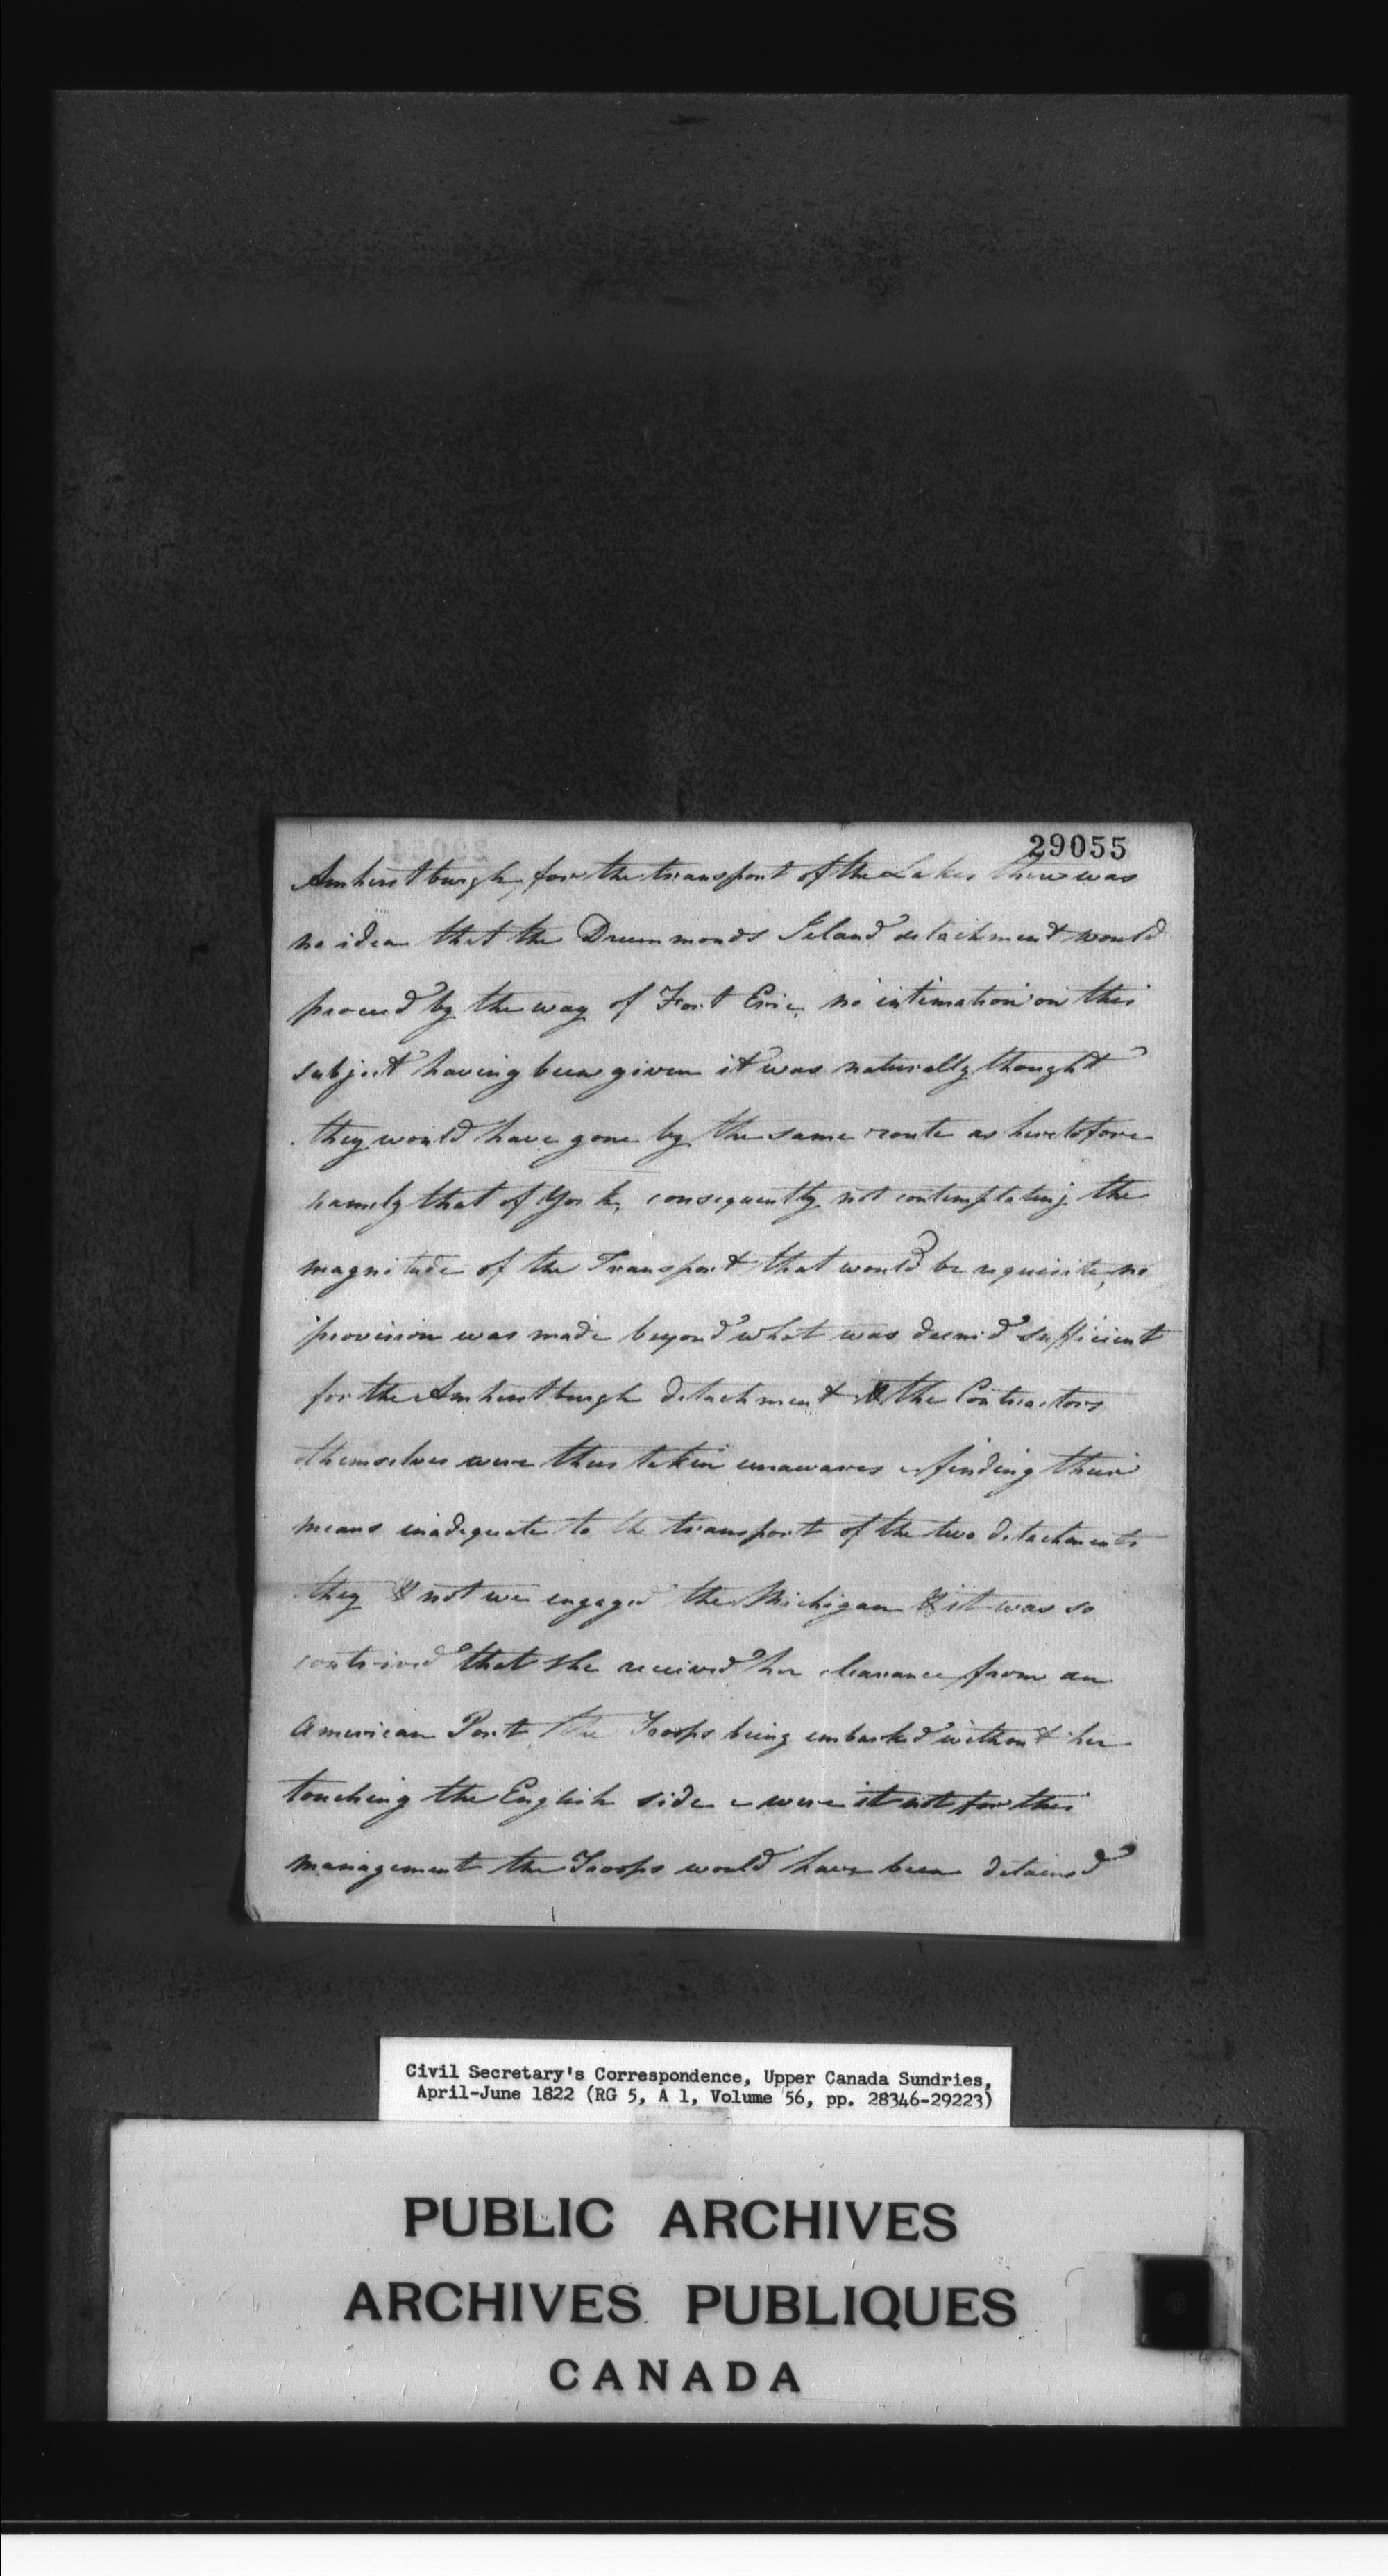 29055
Amherstburgh, for the transport of the Lakes there was
no idea that the Drummonds Island detachment would
proceed by the way of Fort Erie, no intimation on this
subject having been given it was naturally thought
they would have gone by the same route as heretofore
namely that of York, consequently not contemplating the
magnitude of the Transport that would be requisite, no
provision was made beyond what was deemed sufficient
for the Amherstburgh detachment & the Contractors
themselves were thus taken unawares & finding their
means inadequate to the transport of the two detachments
they & not we engaged the Michigan & it was so
contrived that she received her clearance from an
American Port, the Troops being embarked without her
touching the English side & were it not for this
management the Troops would have been detained
Civil Secretary's Correspondence, Upper Canada Sundries,
April-June 1822 (RG 5, A 1, Volume 56, pp. 28346-29223)
PUBLIC ARCHIVES
ARCHIVES PUBLIQUES
CANADA